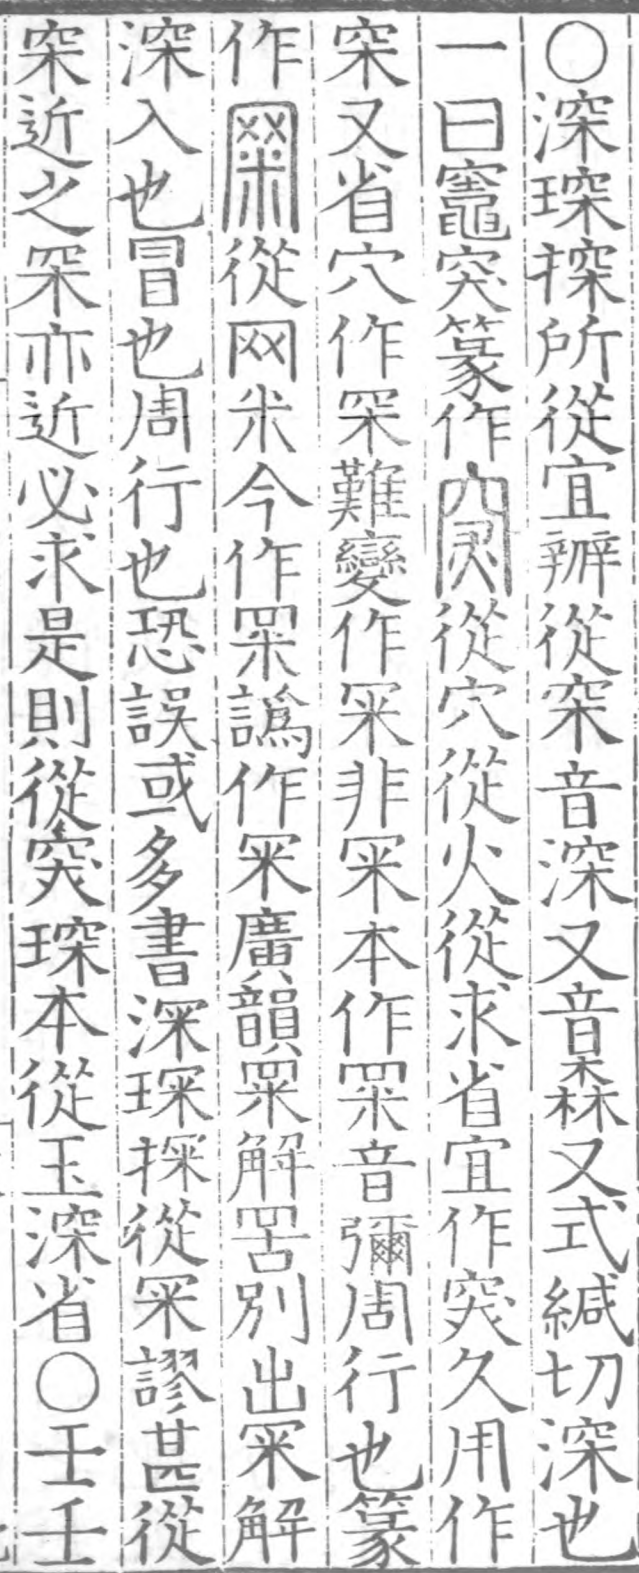 ○深琛探所從宜辨從穼音深又音森又式緘切深也
一曰竈突篆作從穴從火從求省宜作突久用作
穼又省穴作罙難變作冞非冞本作罙音彌周行也篆
作從网米今作罙譌作冞廣韻罙解罟別出冞解
深入也冒也周行也恐誤或多書深琛探從冞謬甚從
穼近之罙亦近必求是則從突琛本從玉深省○壬𡈼